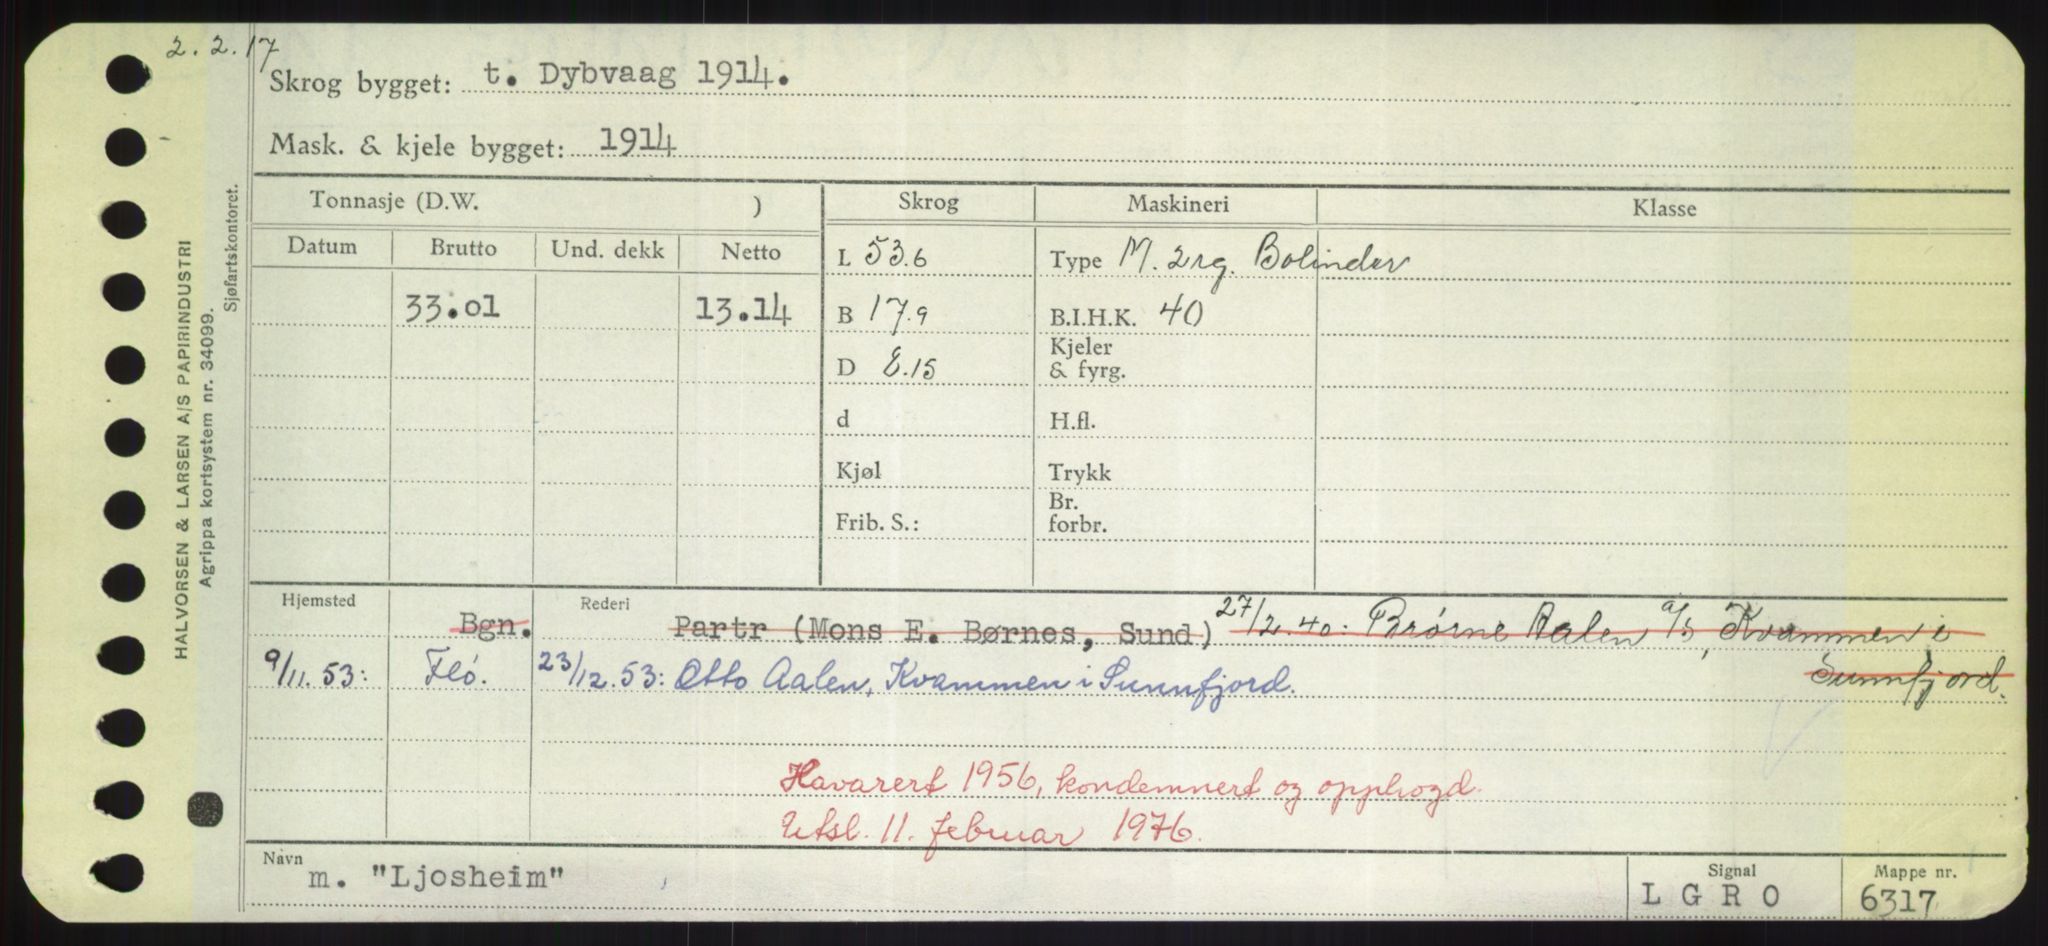 2. 2. 17
Skrog bygget: t. Dybvaag 1914.
Mask. & kjele bygget: 1914
HALVORSEN & LARSEN A/S PAPIRINDUSTRI
Agrippa kortsystem nr. 34099.
Sjøfartskontoret.
Tonnasje (D.W. ) Skrog Maskineri Klasse
Datum Brutto Und. dekk Netto L 53.6 Type M. 2 sg. Bolinder
33.01 13.14 B 17.9 B.I.H.K. 40
D 8.15 Kjeler
& fyrg.
d H.fl.
Kjøl Trykk
Frib. S.: Br.
forbr.
Hjemsted Rederi
Bgn. Partr (Mons E. Børnes, Sund) 27/2.40: Brørne Aalen a/s, Kvammen i
Sunnfjord.
9/11.53: Flø. 23/12.53: Otto Aalen, Kvammen i Sunnfjord.
Havarert 1956, kondemnert og opphogd.
Utsl. 11. februar 1976.
Navn Signal Mappe nr.
m. "Ljosheim" L G R O 6317